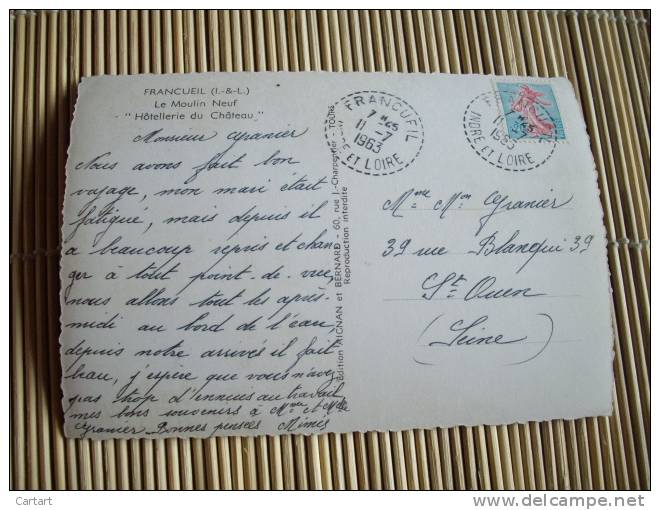 FRANCUEIL (I.-&-L.)
Le Moulin Neuf
"Hôtellerie du Château"
Monsieur Granier
Nous avons fait bon
voyage, mon mari était
fatigué, mais depuis il
a beaucoup repris et chan
ger à tout point-de-vue,
nous allons tout les après-
midi au bord de l'eau,
depuis notre arrivés il fait
beau, j'espère que vous n'avez
pas trop d'ennuies au travail
mes bons souvenirs à Mme et Melle
Granier Bonnes pensées Mimis
Edition MIGNAN et BERNARD - 60, rue J.-Charpentier - TOURS
Reproduction interdite
FRANCUEIL
7 H 25
11 -7
1963
INDRE ET LOIRE
11
1963
INDRE ET LOIRE
Mme Mr Granier
39 rue Blanqui 39
St Ouen
(Seine)
Cartart
delcampe.net